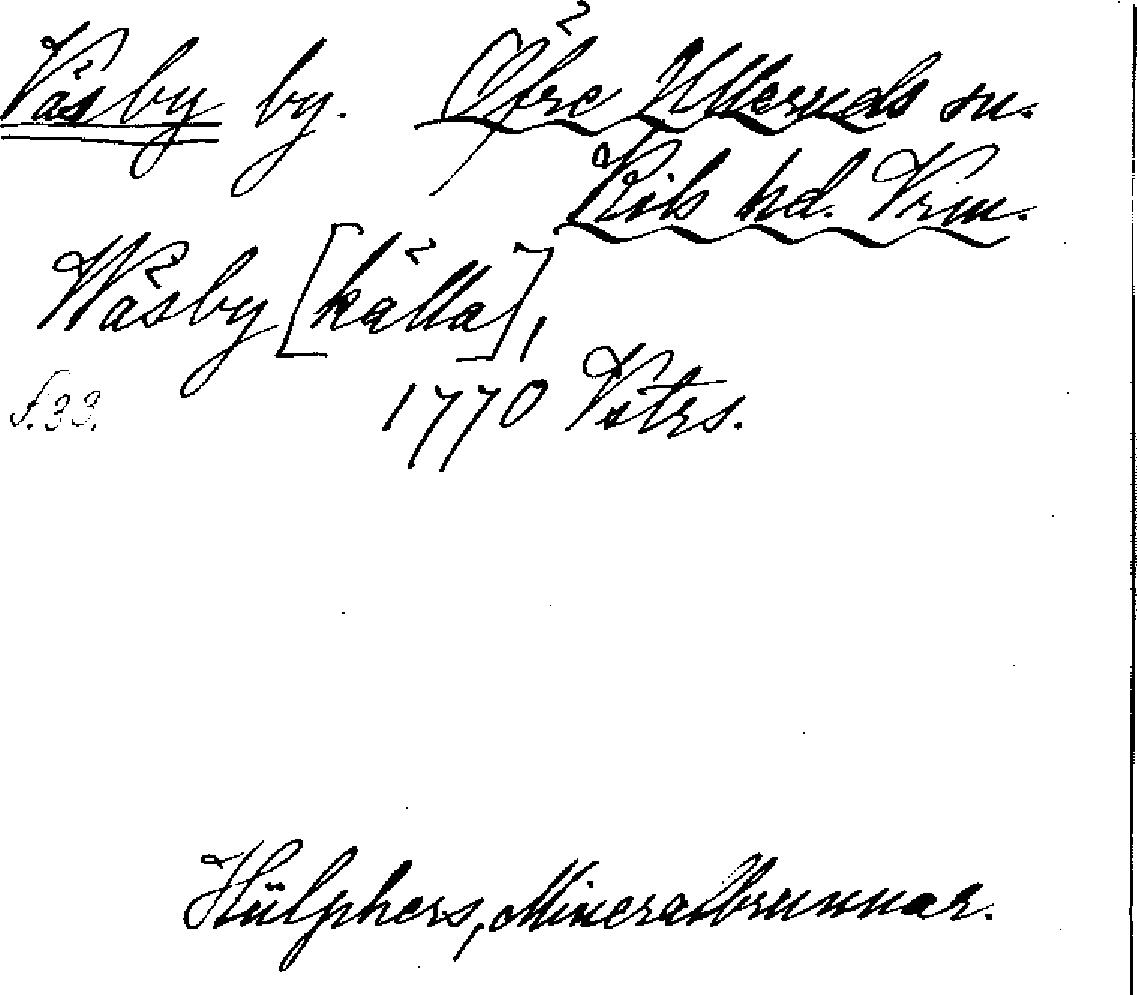 Väsby by. Öfre Ulleruds sn.
Kils hd. Vrm.
Wäsby [källa],
f. 33. 1770 Vstrs.
Hülphers, Mineralbrunnar.